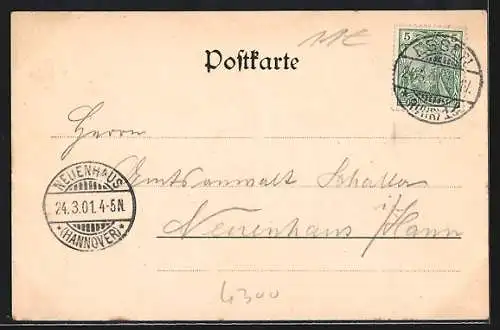 11 €
5
ESSEN
(RUHR)
Postkarte
Herrn
Amtsanwalt Schaller
Neuenhaus i/Hann
NEUENHAUS
24.3.01.4-5N.
*(HANNOVER)*
4300